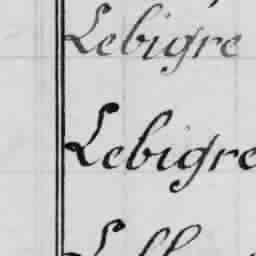 Lebigre
Lebigre